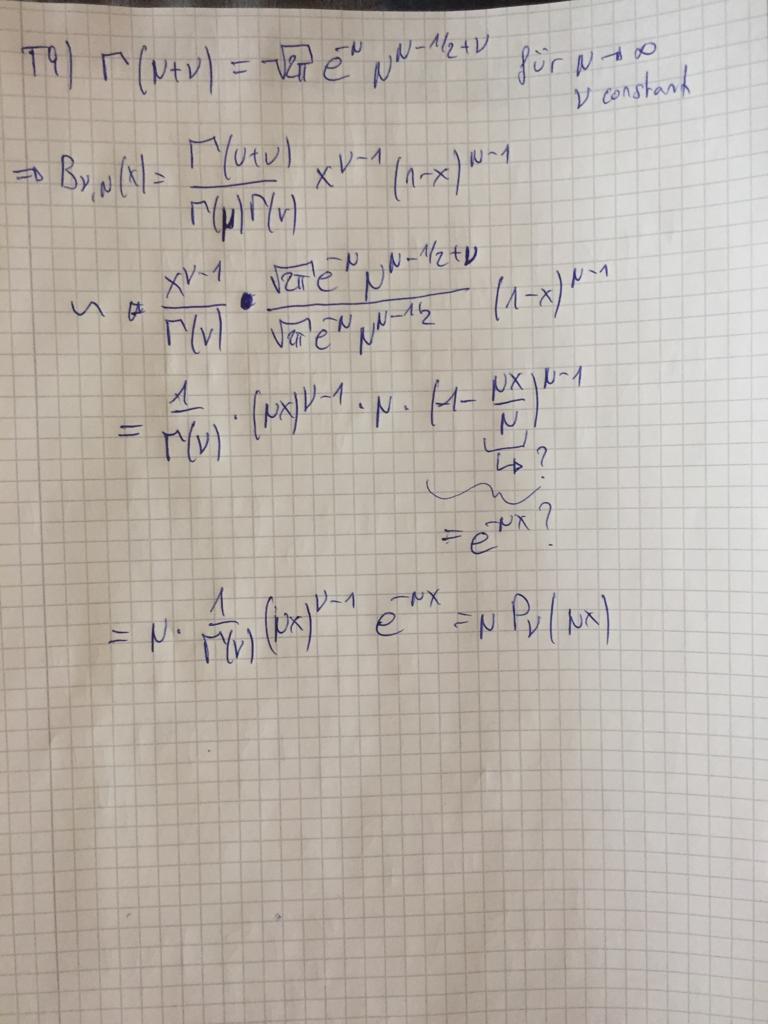 T9) Γ(N+ν) = √2π e^-N N^(N-1/2+ν) für N → ∞
ν constant
⇒ B_ν,N(x) = Γ(ν+ν)/(Γ(μ)Γ(ν)) x^(ν-1) (1-x)^(N-1)
~ x^(ν-1)/Γ(ν) • (√2π e^-N N^(N-1/2+ν))/(√2π e^-N N^(N-1/2)) (1-x)^(N-1)
= 1/Γ(ν) · (Nx)^(ν-1) · N · (1 - Nx/N)^(N-1)
↳ ?
= e^-Nx ?
= N · 1/Γ(ν) (Nx)^(ν-1) e^-Nx = N P_ν(Nx)